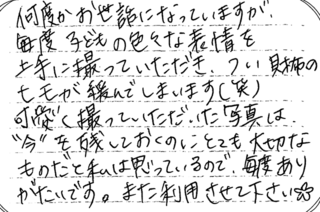 何度かお世話になっていますが、
毎度 子どもの色々な表情を
上手に撮っていただき、つい 財布の
ヒモが緩んでしまいます(笑)
可愛く撮っていただいた写真は、
"今"を残しておくのにとても大切な
ものだと私は思っているので、毎度あり
がたいです。また利用させて下さい